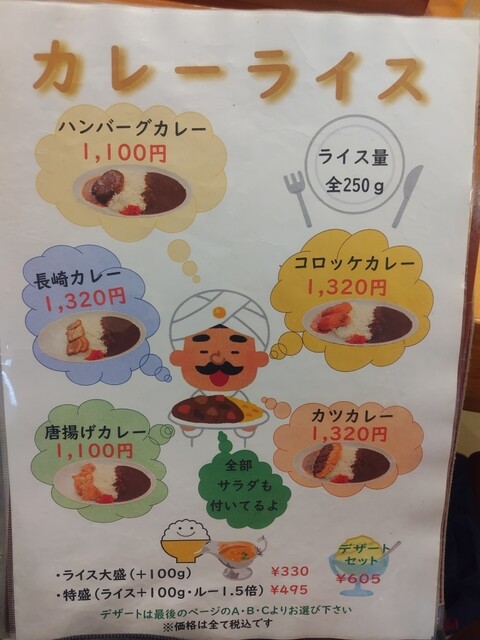 カレーライス
ハンバーグカレー
1,100円
ライス量
全250g
長崎カレー
1,320円
コロッケカレー
1,320円
唐揚げカレー
1,100円
カツカレー
1,320円
全部
サラダも
付いてるよ
デザート
セット
¥605
・ライス大盛(+100g) ¥330
・特盛(ライス+100g・ルー1.5倍) ¥495
デザートは最後のページのA・B・Cよりお選び下さい
※価格は全て税込です